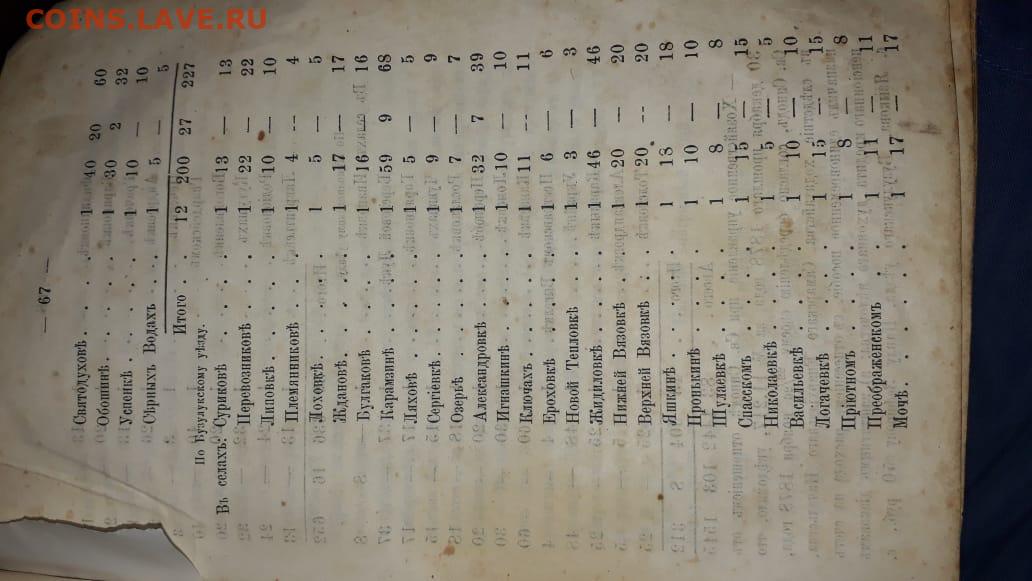 COINS.LAVE.RU
— 67 —
Святодуховѣ . . . . 1 40 20 60
Обошинѣ . . . . 1 30 2 32
Успенкѣ . . . . 1 10 — 10
Сѣрныхъ Водахъ . . . 1 5 — 5
Итого . . 12 200 27 227
По Бузулукскому уѣзду.
Въ селахъ: Суриковѣ . . . . 1 13 — 13
Перевозниковѣ . . . 1 22 — 22
Липовкѣ . . . . 1 10 — 10
Племянниковѣ . . . 1 4 -- 4
Лоховкѣ . . . . 1 5 — 5
Ждановѣ . . . . 1 17 — 17
Булгаковѣ . . . . 1 16 — 16
Карамзинѣ . . . . 1 59 9 68
Ляховѣ . . . . 1 5 — 5
Сергіевкѣ . . . . 1 9 — 9
Озеркѣ . . . . 1 7 — 7
Александровкѣ . . . 1 32 7 39
Игнашкинѣ . . . . 1 10 — 10
Ключахъ . . . . 1 11 -- 11
Ероховкѣ . . . . 1 6 — 6
Новой Тепловкѣ . . . 1 3 — 3
Жидиловкѣ . . . . 1 46 — 46
Нижней Вязовкѣ . . . 1 20 — 20
Верхней Вязовкѣ . . . 1 20 -- 20
Яшкинѣ . . . . 1 18 — 18
Пронькинѣ . . . . 1 10 — 10
Шулаевкѣ . . . . 1 8 — 8
Спасскомъ . . . . 1 15 — 15
Николаевкѣ . . . . 1 5 — 5
Васильевкѣ . . . . 1 10 — 10
Логачевкѣ . . . . 1 15 — 15
Пріютномъ . . . . 1 8 — 8
Преображенскомъ . . . 1 11 — 11
Мочѣ . . . . 1 17 — 17